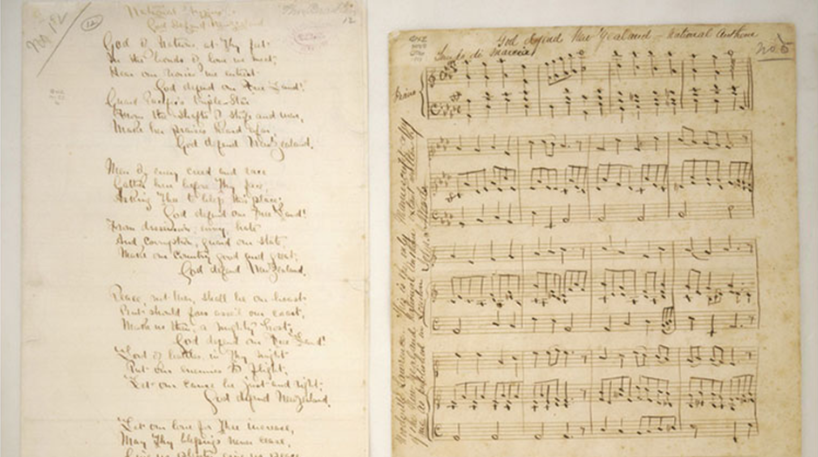 No 12
12
National Hymn
God defend New Zealand
12
God of Nations, at Thy feet
In the bonds of love we meet;
Hear our voices we entreat
God defend our Free Land!
Guard Pacific's triple Star
From the shafts of strife and war,
Make her praises heard afar,
God defend New Zealand.
Men of every creed and race
Gather here before Thy face,
Asking Thee to bless this place,
God defend our Free Land!
From dissension, envy, hate
And corruption, guard our State,
Make our Country good and great,
God defend New Zealand.
Peace, not War, shall be our boast
But should foes assail our coast,
Make us then a mighty host,
God defend our Free Land!
Lord of battles in Thy might
Put our enemies to flight,
Let our cause be just and right;
God defend New Zealand.
Let our love for Thee increase,
May Thy blessings never cease,
Give us plenty, give us peace
God defend New Zealand - National Anthem
No 5
Piano